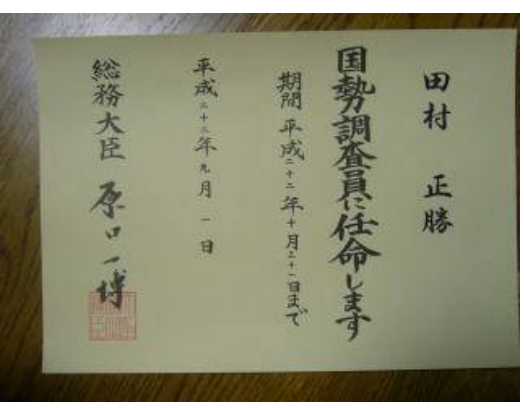 田村 正勝
国勢調査員に任命します
期間 平成二十二年十月三十一日まで
平成二十二年九月一日
総務大臣 原口一博